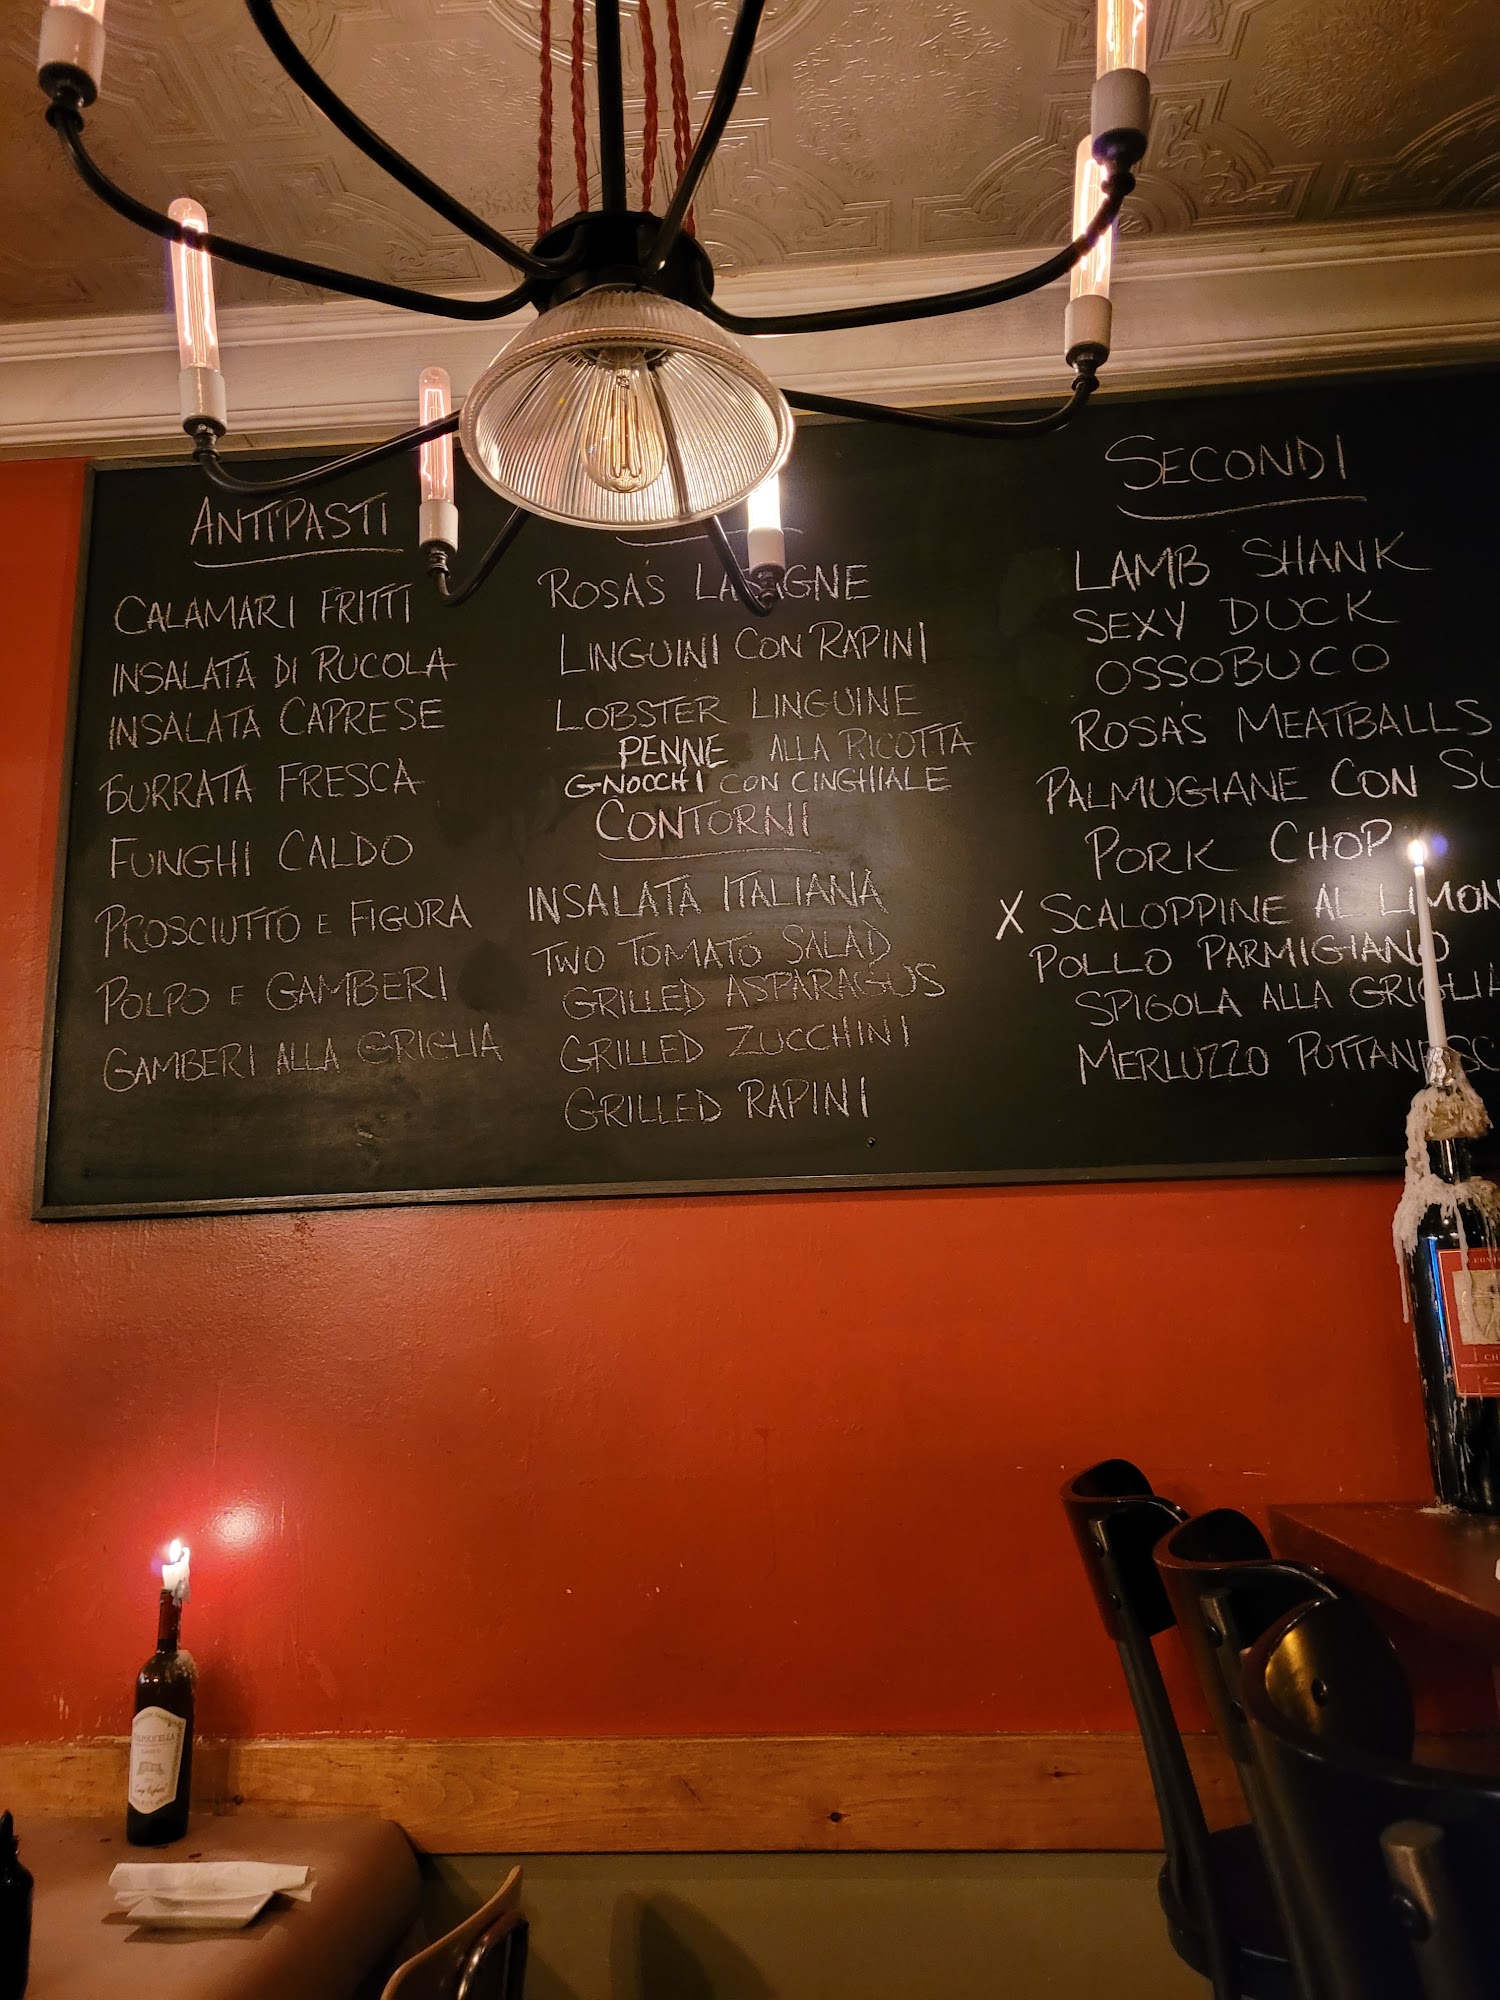 ANTIPASTI
CALAMARI FRITTI
INSALATA DI RUCOLA
INSALATA CAPRESE
BURRATA FRESCA
FUNGHI CALDO
PROSCIUTTO E FIGURA
POLPO E GAMBERI
GAMBERI ALLA GRIGLIA
ROSA'S LASAGNE
LINGUINI CON RAPINI
LOBSTER LINGUINE
PENNE ALLA RICOTTA
GNOCCHI CON CINGHIALE
CONTORNI
INSALATA ITALIANA
TWO TOMATO SALAD
GRILLED ASPARAGUS
GRILLED ZUCCHINI
GRILLED RAPINI
SECONDI
LAMB SHANK
SEXY DUCK
OSSOBUCO
ROSA'S MEATBALLS
PALMUGIANE CON SU
PORK CHOP
X SCALOPPINE AL LIMON
POLLO PARMIGIANO
SPIGOLA ALLA GRIGLI
MERLUZZO PUTTANESC